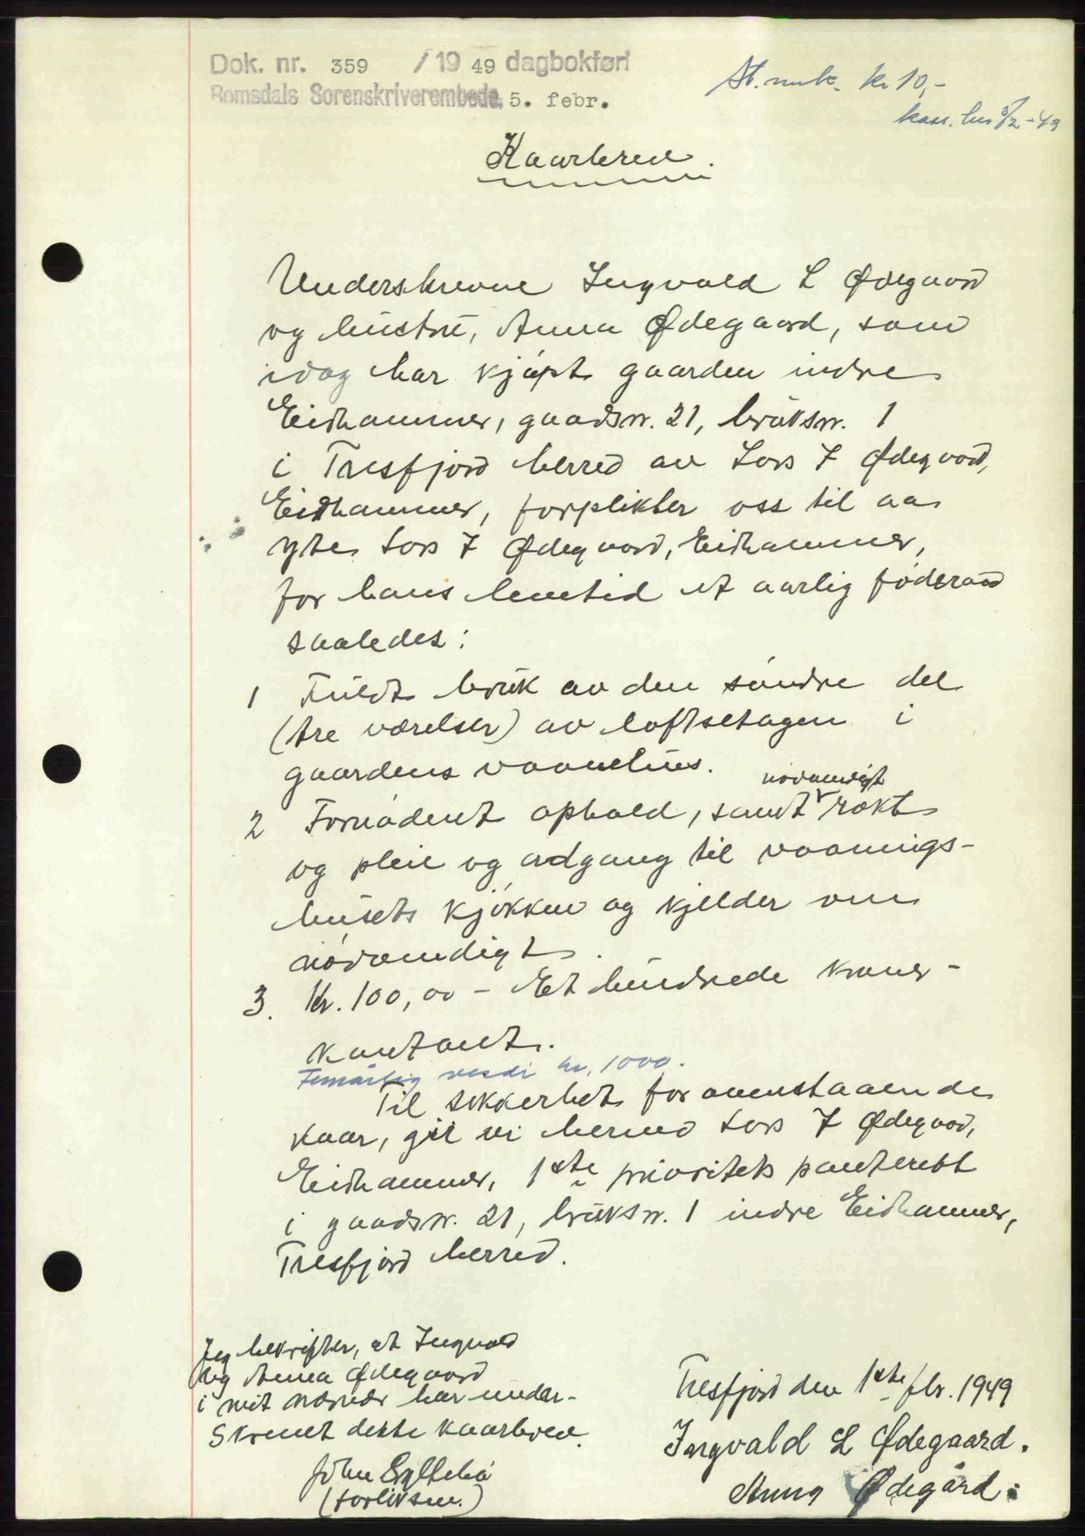 Dok. nr. 359 /19 49 dagbokført
Romsdals Sorenskriverembede, 5. febr.
St. merke. kr 10,-
kass. 5/2-49
Kaarbrev.
Underskrevne Ingvald L Ødegaard
og hustru, Anna Ødegaard, som
idag har kjøpt gaarden indre
Eidhammer, gaardsnr. 21, bruksnr. 1
i Tresfjord herred av Lars I Ødegaard,
Eidhammer, forplikter oss til aa
yte Lars I Ødegaard, Eidhammer,
for hans levetid et aarlig føderaad
saaledes:
1 Fuldt bruk av den søndre del
(tre værelser) av loftsetagen i
gaardens vaanehus.
nødvendigt
2 Fornødent ophold, samt røkt
og pleie og adgang til vaanings-
husets kjøkken og kjelder om
nødvendigt.
3. Kr. 100,00 - Et hundrede kroner -
kontant.
Femårlig verdi kr. 1000.
Til sikkerhet for ovenstaaende
kaar, gir vi herved Lars I Ødegaard,
Eidhammer, 1ste prioritets panterett
i gaardsnr. 21, bruksnr. 1 indre Eidhammer,
Tresfjord herred.
Jeg bekrefter, at Ingvald
og Anna Ødegaard
i mit nærvær har under-
skrevet dette kaarbrev.
John Syltebø
(Forliksm.)
Tresfjord den 1ste febr. 1949
Ingvald L Ødegaard.
Anna Ødegård.